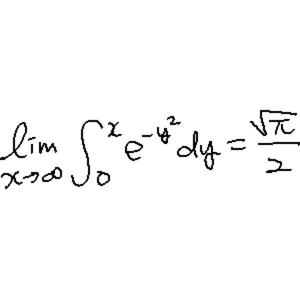 lim x→∞ ∫₀ˣ e^(-y²) dy = √π/2